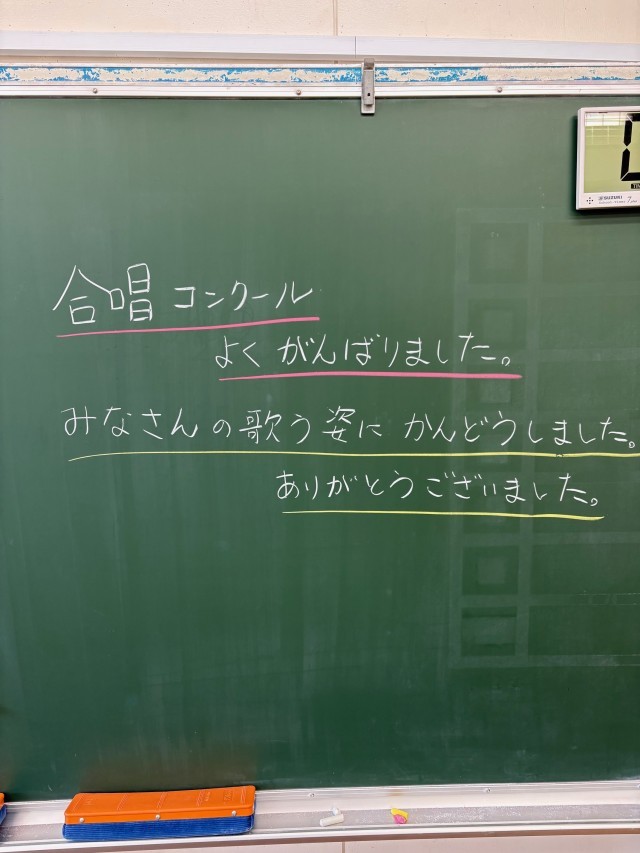 合唱コンクール
よくがんばりました。
みなさんの歌う姿にかんどうしました。
ありがとうございました。